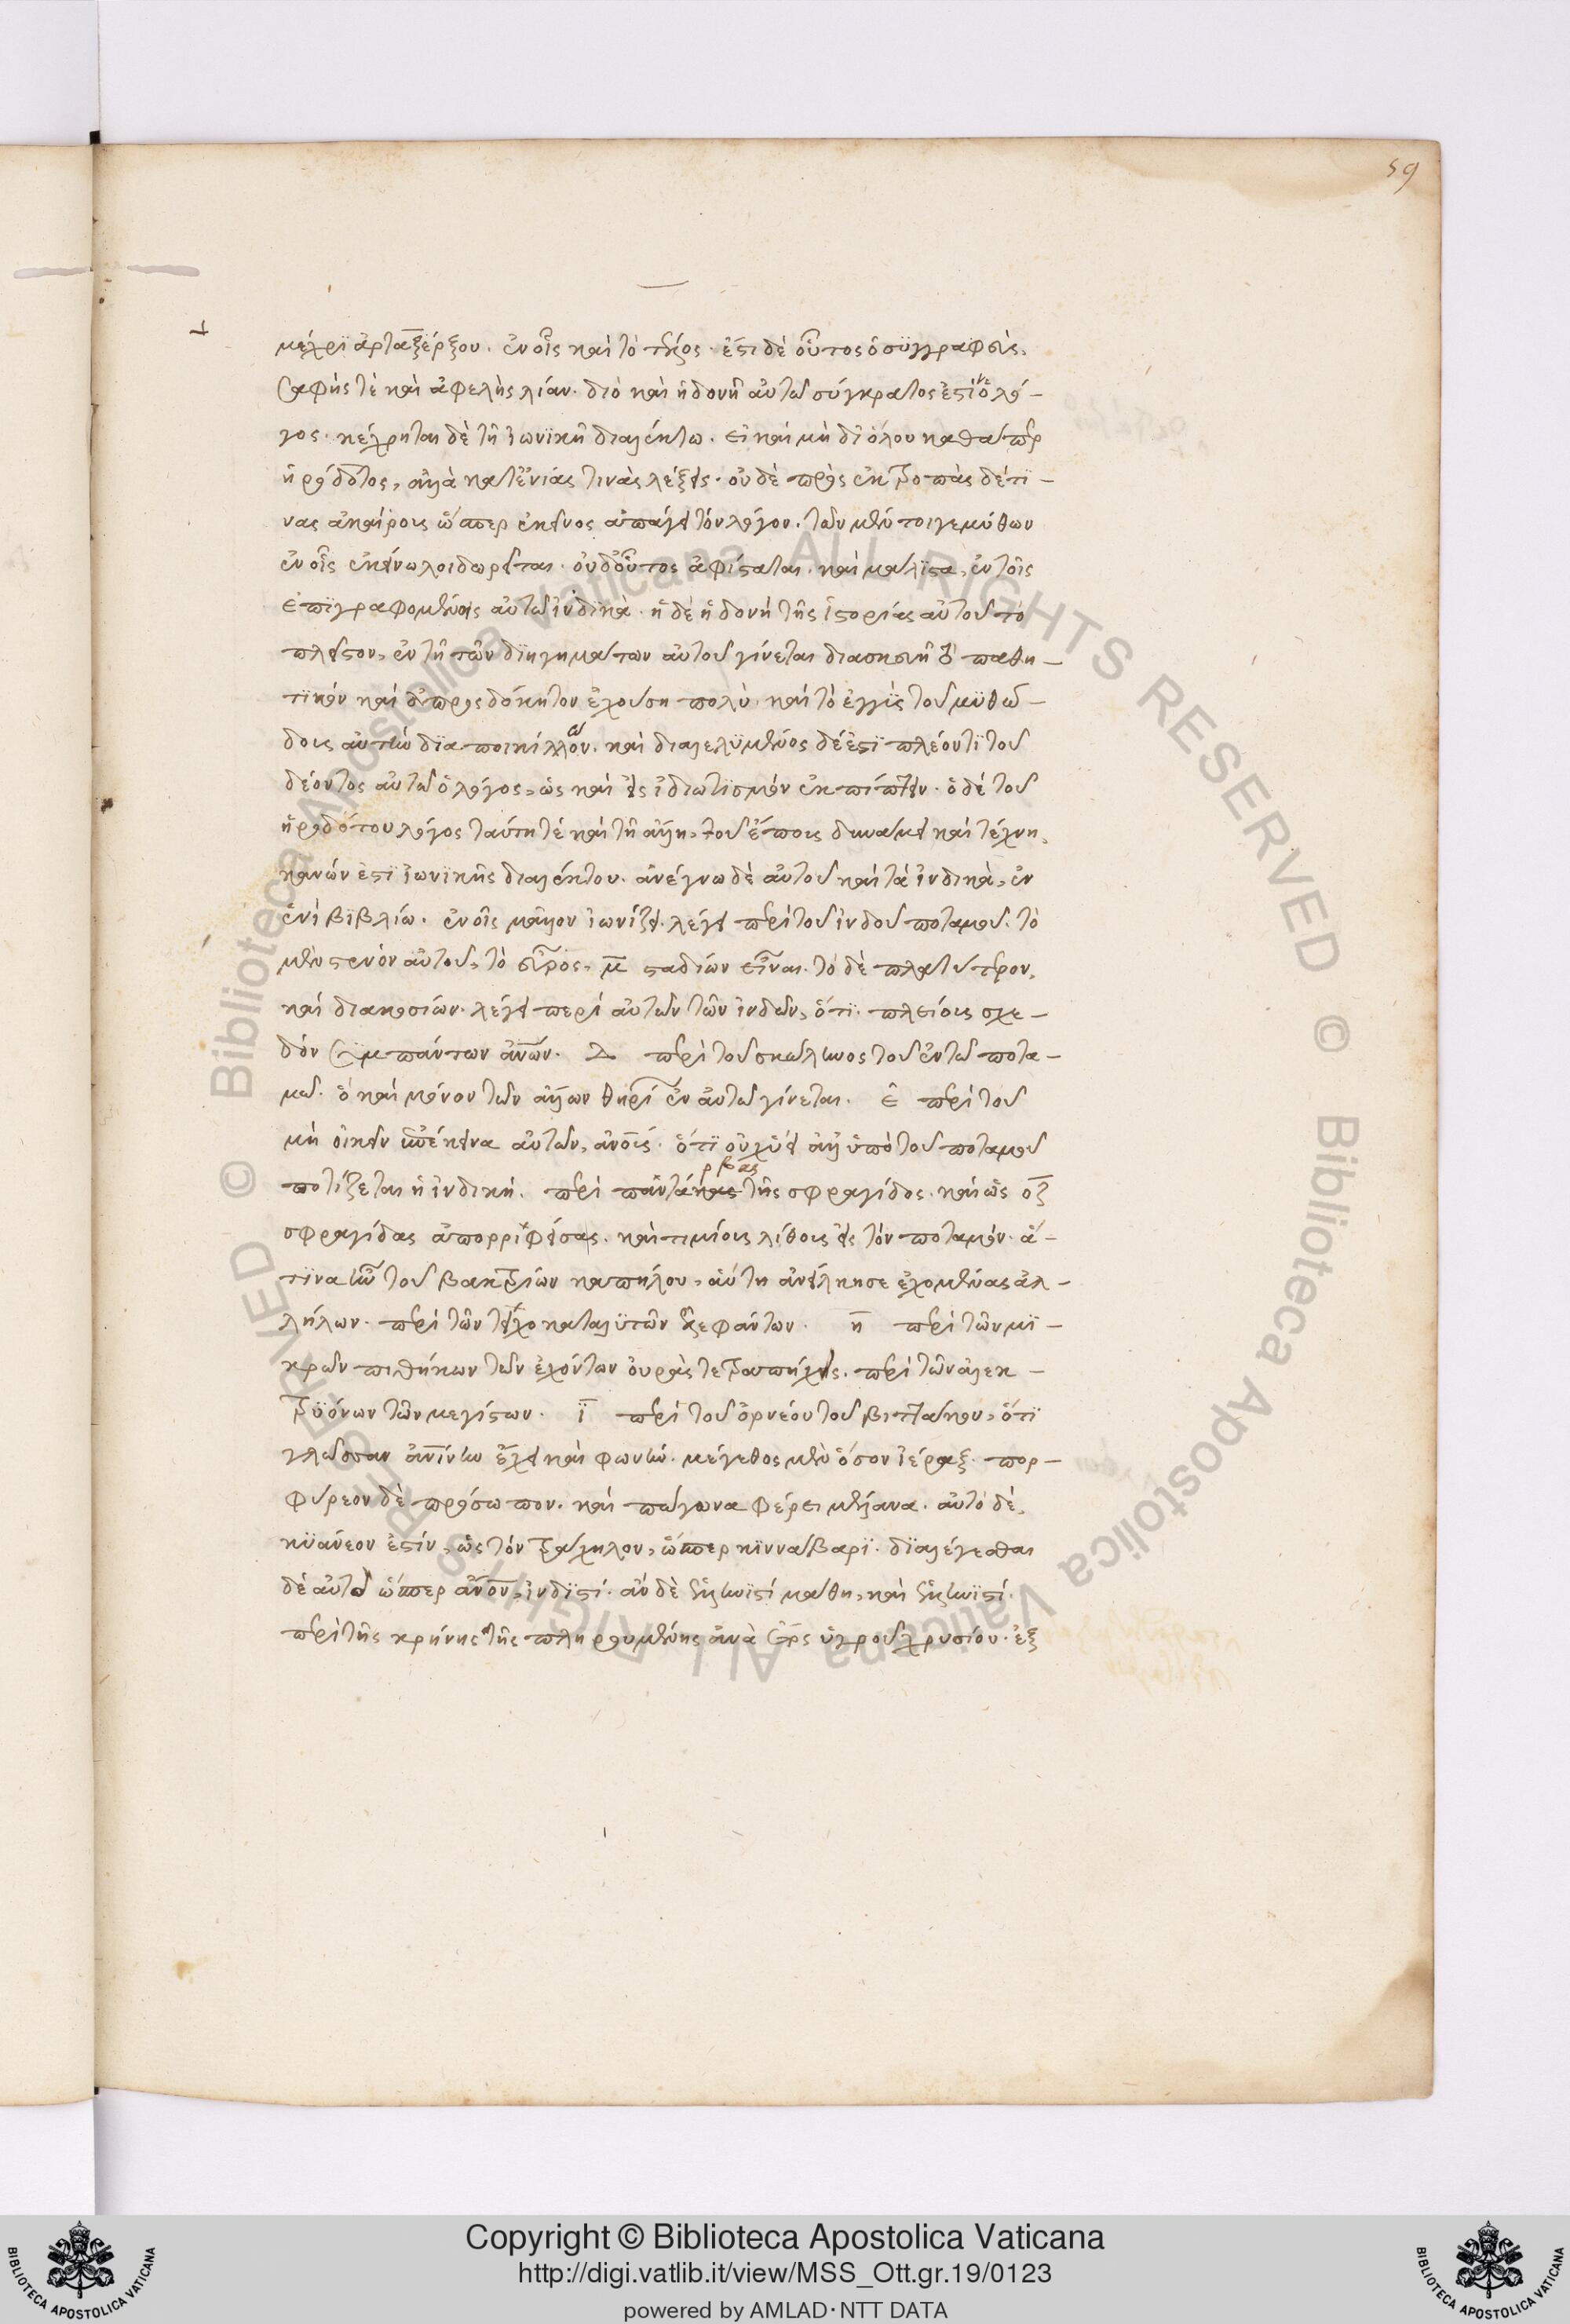 59
μέχρϊ ἀρταξέρξου. ἐν οἷς καὶ τὸ τέλος. ἔστι δὲ οὗτος ὁ σϋγγραφεὺς,
σαφής τὲ καὶ ἀφελὴς λίαν. διὸ καὶ ἡδονῆ αὐτῶ σύγκρατος ἐστὶν ὁ λό-
γος. κέχρηται δὲ τῆ ἰωνϊκῆ διαλέκτω. εἰ καὶ μὴ δι' ὅλου καθάπερ
ἡρόδοτος, ἀλλὰ κατ' ἐνίας τινὰς λέξεις. οὐδὲ πρὸς ἐκτροπὰς δέ τϊ-
νας ἀκαίρους ὥσπερ ἐκεῖνος ἀπάγει τὸν λόγον. τῶν μέν τοι γε μύθων
ἐν οἷς ἐκείνω λοιδωρεῖται. οὐδ' οὗτος ἀφίσταται. καὶ μάλϊστα, ἐν τοῖς
ἐπϊγραφομένοις αὐτῶ ἰνδϊκὰ. ἡ δὲ ἡδονή τῆς ἱστορίας αὐτοῦ τὸ
πλεῖστον, ἐν τῆ τῶν δϊηγημάτων αὐτοῦ γίνεται διασκευῆ τὸ παθη-
τϊκὸν καὶ ἀπροσδόκητον ἐχούση πολὺ. καὶ τὸ ἐγγὺς τοῦ μϋθώ-
δους αὐτὴν δϊαποικίλλον. καὶ διαλελϋμένος δέ ἐστϊ πλέον τϊ τοῦ
δέοντος αὐτῶ ὁ λόγος, ὡς καὶ εἰς ἰδιωτϊσμὸν ἐκπίπτειν. ὁ δὲ τοῦ
ἡροδότου λόγος ταύτη τέ καὶ τῆ ἄλλη, τοῦ ἔπους δυνάμει καὶ τέχνη,
κανών ἐστϊ ἰωνϊκῆς διαλέκτου. ἀνέγνω δὲ αὐτοῦ καὶ τὰ ἰνδικὰ, ἐν
ἑνὶ βϊβλίω. ἐν οἷς μᾶλλον ἰωνίζει. λέγει περὶ τοῦ ἰνδοῦ ποταμοῦ. τὸ
μὲν στενὸν αὐτοῦ, τὸ εὖρος, μ̅ σταδίων εἶναι. τὸ δὲ πλατύτερον,
καὶ διακοσίων. λέγει περὶ αὐτῶν τῶν ἰνδῶν, ὅτϊ πλείους σχε-
δὸν σϋμπάντων ἀν̅ων. Δ περὶ τοῦ σκώληκος τοῦ ἐν τῶ ποτα-
μῶ. ὃ καὶ μόνον τῶν ἄλλων θηρίων ἐν αὐτῶ γίνεται. ε̅ περὶ τοῦ
μὴ οἰκεῖν ὑπ' ἐκεῖνα αὐτῶν, ἀν̅οις. ὅτϊ οὐχ ὕει ἀλλ' ὑπὸ τοῦ ποταμοῦ
ποτίζεται ἡ ἰνδική. περὶ παντάρβας τῆς σφραγίδος. καὶ ὡς οζ̅
σφραγίδας ἀπορριφείσας. καὶ τιμίους λίθους εἰς τὸν ποταμὸν. ἅ-
τϊνα ἦν τοῦ βακτρίων καπήλου, αὕτη ἀνείλκησε ἐχομένας ἀλ-
λήλων. περὶ τῶν τειχοκαταλϋτῶν ἐλεφάντων. η̅ περὶ τῶν μϊ-
κρῶν πιθήκων τῶν ἐχόντων οὐρὰς τετραπήχεις. περὶ τῶν ἀλεκ-
τρϋόνων τῶν μεγίστων. ϊ̅ περὶ τοῦ ὀρνέου τοῦ βιττάκου, ὅτϊ
γλῶσσαν ἀν̅ίνην ἔχει καὶ φωνὴν. μέγεθος μὲν ὅσον ἱέραξ. πορ-
φύρεον δὲ πρόσωπον. καὶ πώγωνα φέρει μέλανα. αὐτὸ δὲ,
κϋάνεον ἐστίν, ὡς τὸν τράχηλον, ὥσπερ κϊννάβαρϊ. δϊαλέγεσθαι
δὲ αὐτὸ ὥσπερ ἄν̅ον, ἰνδϊστί. ἂν δὲ ἑλληνϊστί μάθη, καὶ ἑλληνϊστί.
περὶ τῆς κρήνης τῆς πληρουμένης ἀνὰ ἔτος ὑγροῦ χρυσίου. ἐξ
Copyright © Biblioteca Apostolica Vaticana
http://digi.vatlib.it/view/MSS_Ott.gr.19/0123
powered by AMLAD·NTT DATA
BIBLIOTECA APOSTOLICA VATICANA
BIBLIOTECA APOSTOLICA VATICANA
© Biblioteca Apostolica Vaticana ALL RIGHTS RESERVED
© Biblioteca Apostolica Vaticana ALL RIGHTS RESERVED